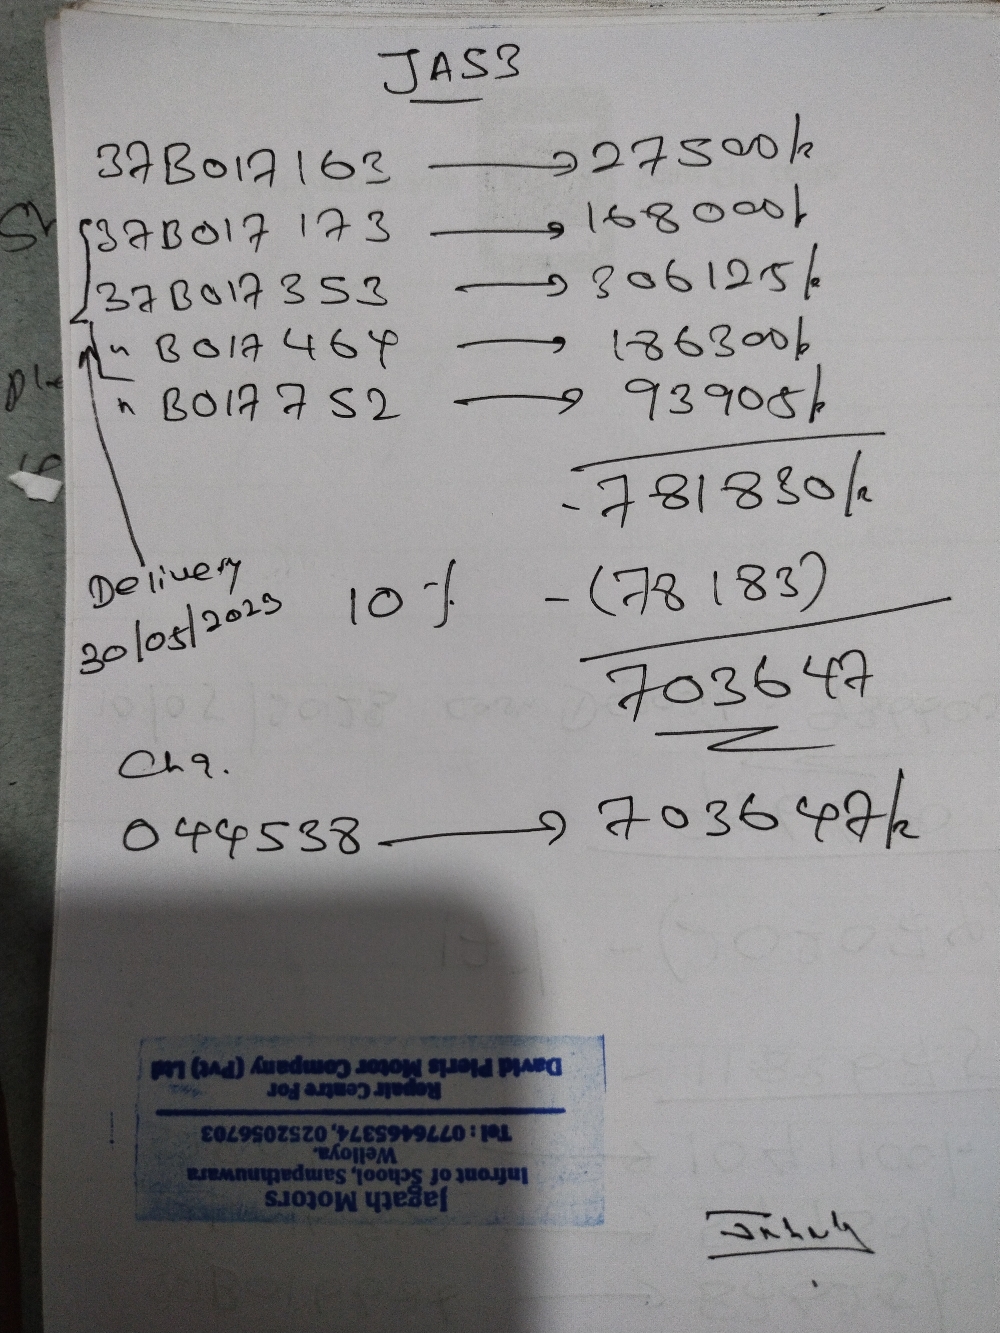 JAS3
37B017163 → 27500/=
37B017 173 → 168000/=
37B017353 → 306125/=
" B017464 → 186300/=
" B017752 → 93905/=
- 781830/=
Delivery
30/05/2023
10% - (78183)
703647
Chq.
044538 → 703647/=
Jagath Motors
Infront of School, Sampathnuwara
Welloya.
Tel : 0776465374, 0252056703
Repair Centre For
David Pieris Motor Company (Pvt) Ltd